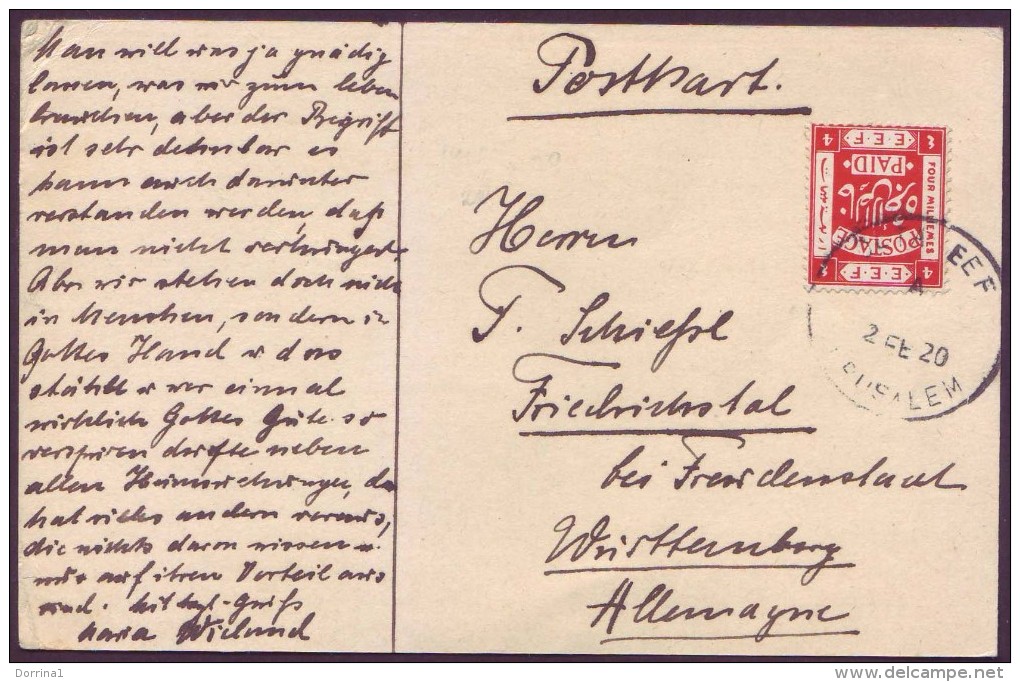 Man will uns ja gnädig
lassen, was wir zum leben
brauchen, aber der Begriff
ist sehr dehnbar es
kann auch darunter
verstanden werden, daß
man nicht verhungert.
Aber wir stehen doch nicht
in Menschen, sondern in
Gottes Hand u das
u wer einmal
wirklich Gottes Güte so
verspüren durfte neben
allen
hat vieles andern voraus,
die nichts davon wissen u.
nur auf ihren Vorteil aus
sind. Mit hzl. Gruß
Maria Wieland
Postkart.
Herrn
T. Schießl
Friedrichstal
bei Freudenstadt
Württemberg
Allemagne
E.E.F
PAID
FOUR MILLIEMES
POSTAGE
E.E.F
4
EEF
A
2 FE 20
RUSALEM
Dorrina1
www.delcampe.net